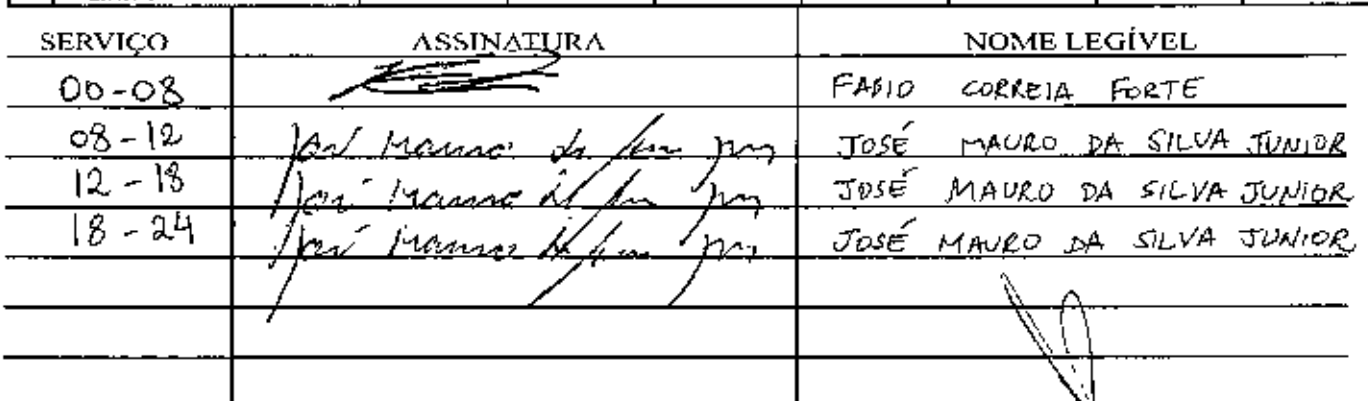 SERVIÇO ASSINATURA NOME LEGÍVEL
00-08 FABIO CORREIA FORTE
08-12 José Mauro da Silva Jun JOSÉ MAURO DA SILVA JUNIOR
12-18 José Mauro da Silva Jun JOSÉ MAURO DA SILVA JUNIOR
18-24 José Mauro da Silva Jun JOSÉ MAURO DA SILVA JUNIOR